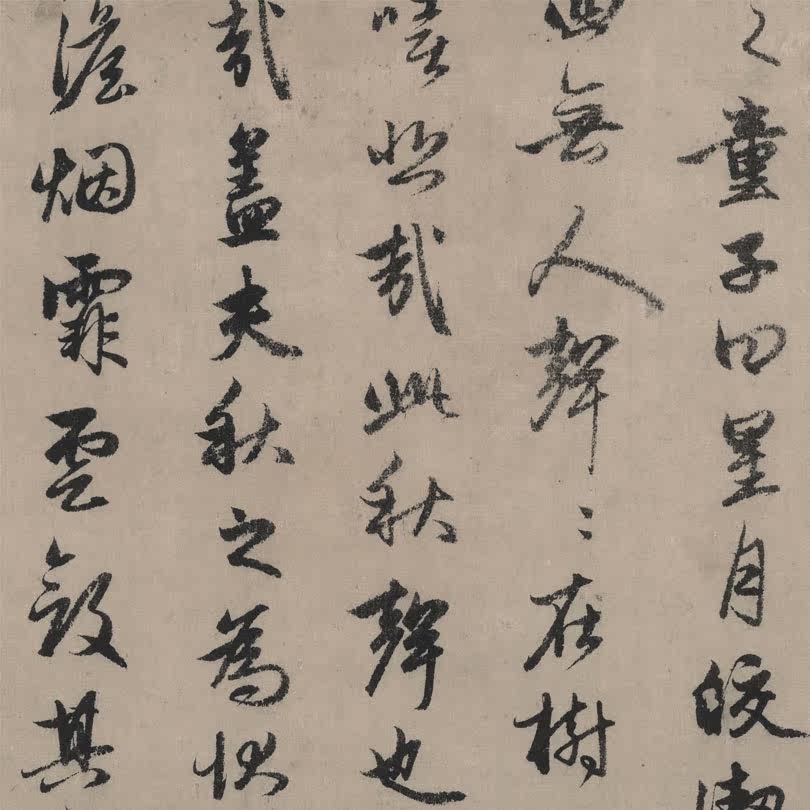 之童子曰星月皎
無人聲〻在樹
悲哉此秋聲也
哉盖夫秋之為狀
澹烟霏雲斂其